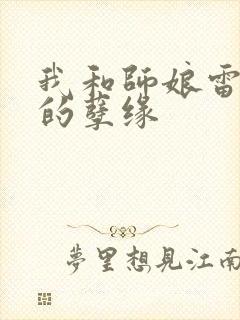 我和師娘雷
的孽缘
夢里想見江南